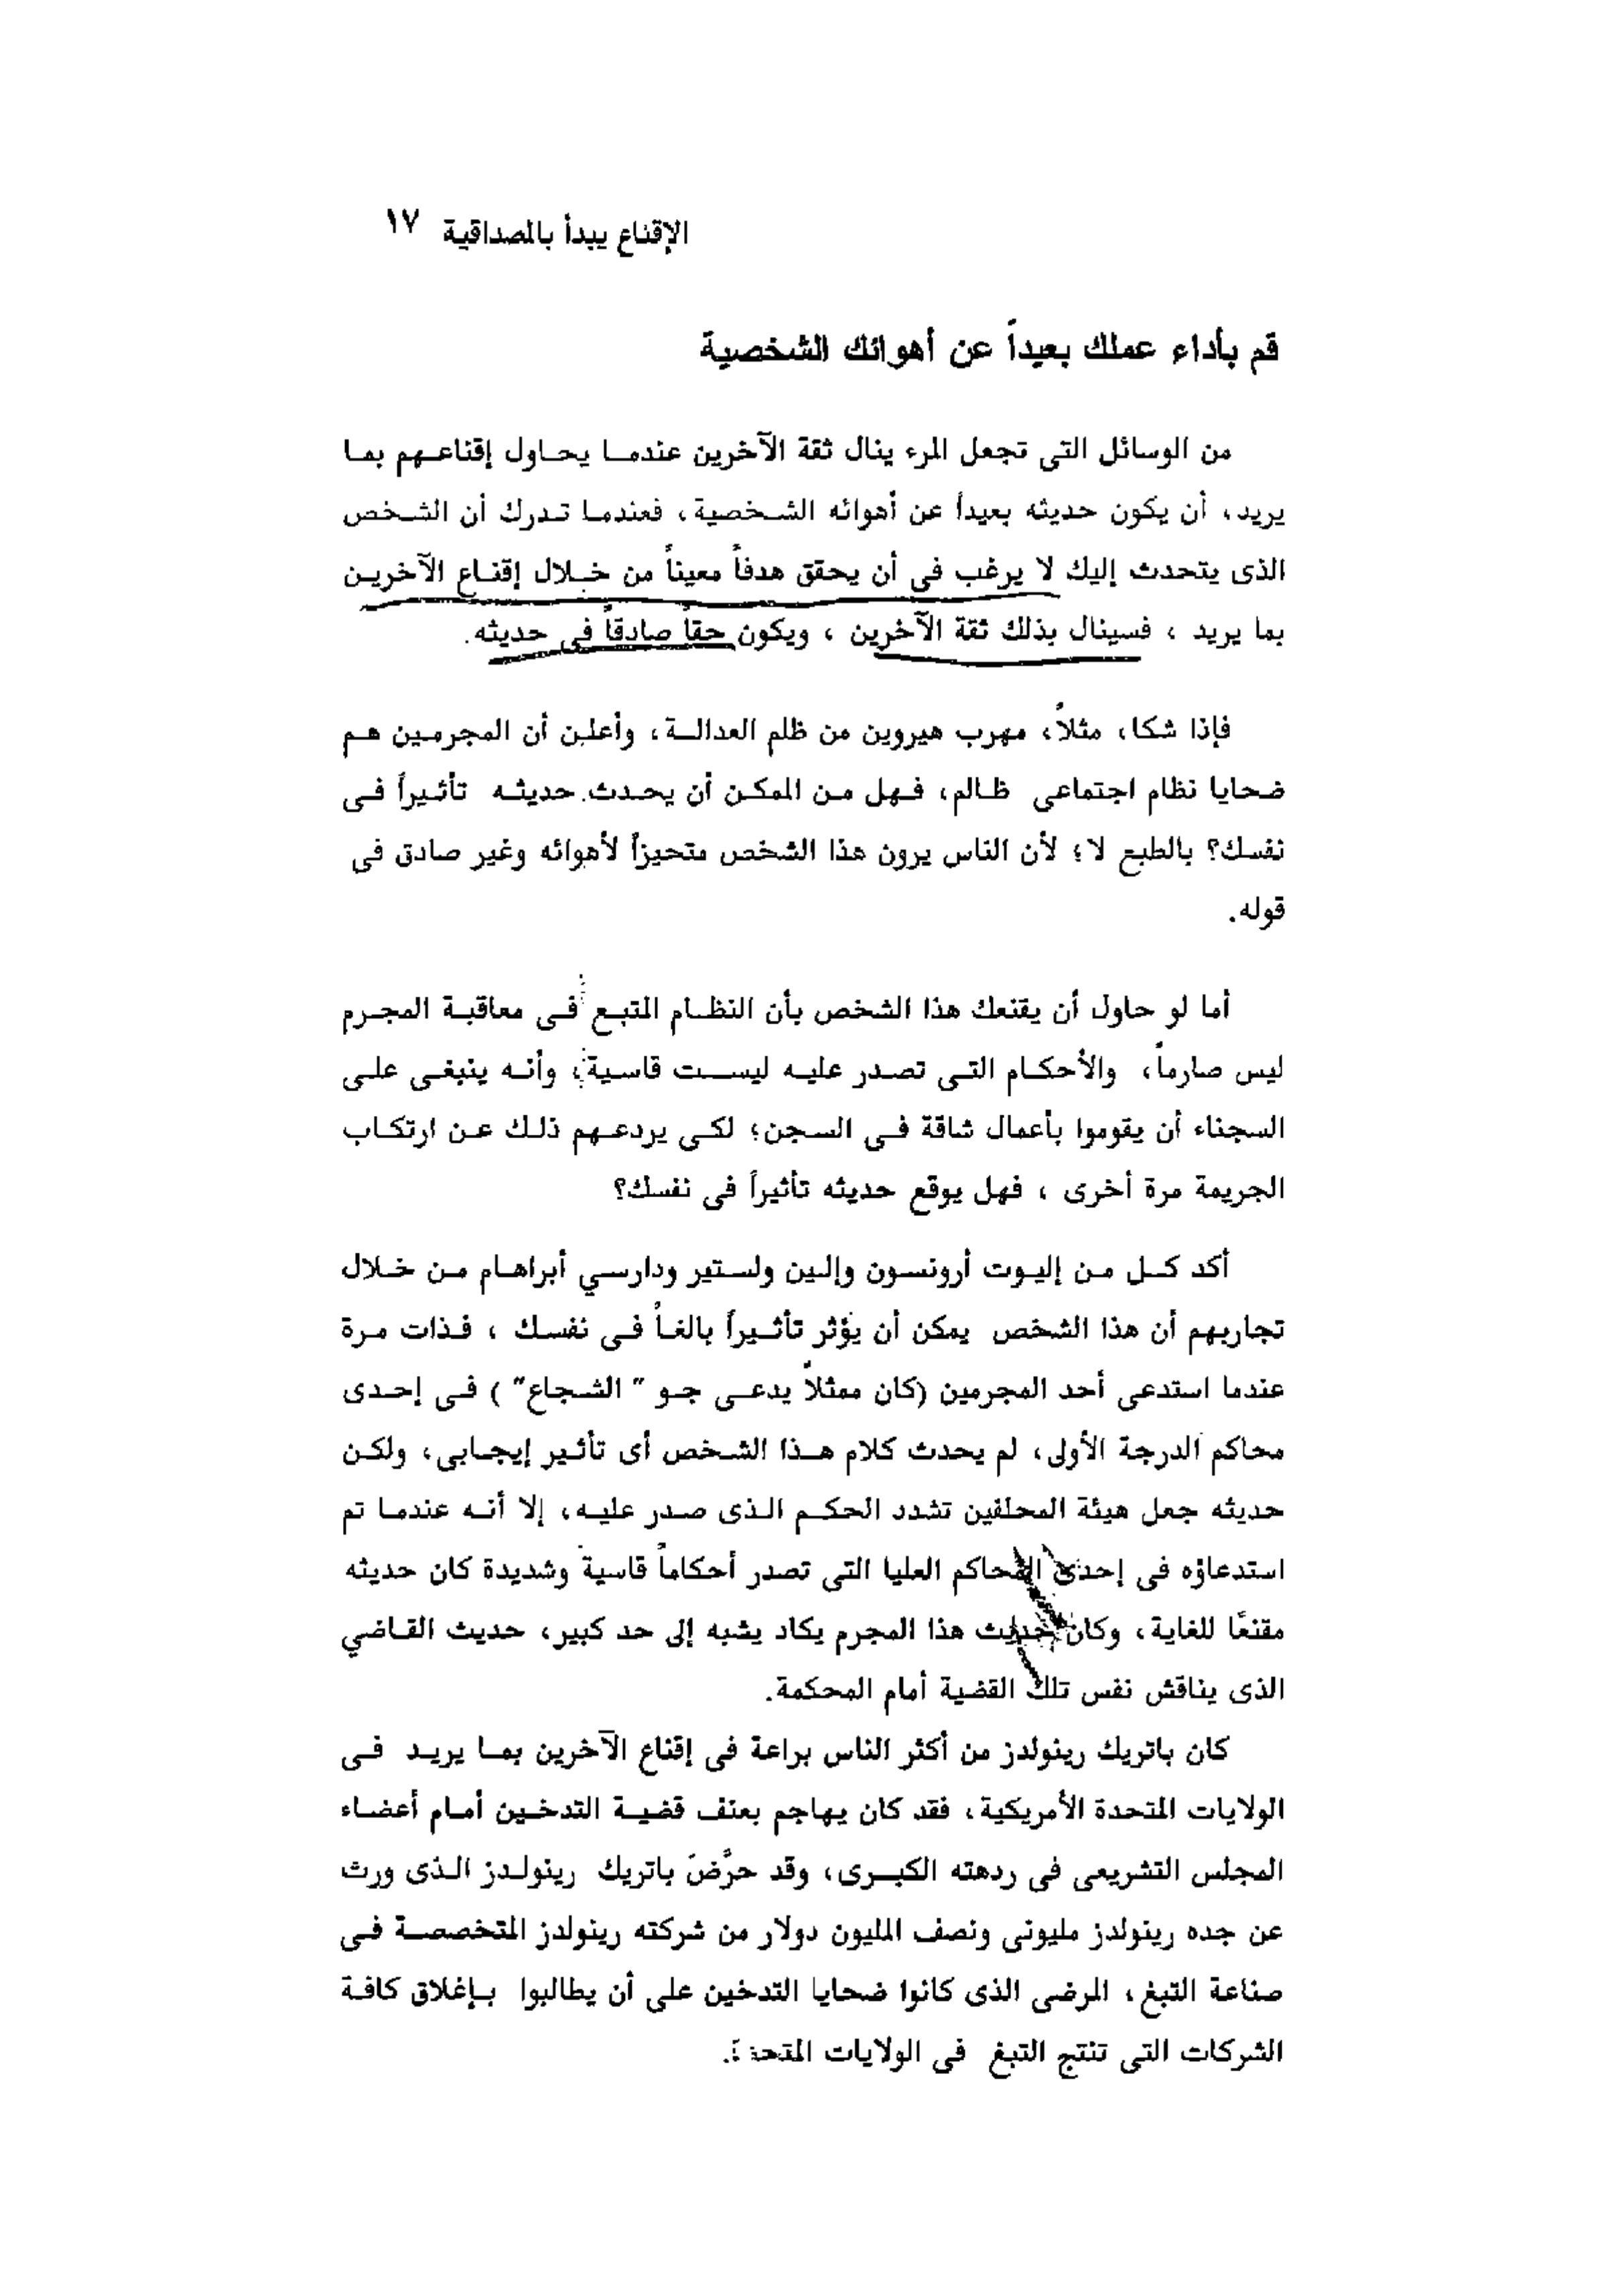 الإقناع يبدأ بالمصداقية ١٧
قم بأداء عملك بعيداً عن أهوائك الشخصية
من الوسائل التى تجعل المرء ينال ثقة الآخرين عندما يحاول إقناعهم بما
يريد، أن يكون حديثه بعيداً عن أهوائه الشخصية، فعندما تدرك أن الشخص
الذى يتحدث إليك لا يرغب فى أن يحقق هدفاً معيناً من خلال إقناع الآخرين
بما يريد ، فسينال بذلك ثقة الآخرين ، ويكون حقاً صادقاً فى حديثه.
فإذا شكا، مثلاً، مهرب هيروين من ظلم العدالة، وأعلن أن المجرمين هم
ضحايا نظام اجتماعى ظالم، فهل من الممكن أن يحدث حديثه تأثيراً فى
نفسك؟ بالطبع لا؛ لأن الناس يرون هذا الشخص متحيزاً لأهوائه وغير صادق فى
قوله.
أما لو حاول أن يقنعك هذا الشخص بأن النظام المتبع فى معاقبة المجرم
ليس صارماً، والأحكام التى تصدر عليه ليست قاسية، وأنه ينبغى على
السجناء أن يقوموا بأعمال شاقة فى السجن؛ لكى يردعهم ذلك عن ارتكاب
الجريمة مرة أخرى ، فهل يوقع حديثه تأثيراً فى نفسك؟
أكد كل من إليوت أرونسون وإلين ولستير ودارسي أبراهام من خلال
تجاربهم أن هذا الشخص يمكن أن يؤثر تأثيراً بالغاً فى نفسك ، فذات مرة
عندما استدعى أحد المجرمين (كان ممثلاً يدعى جو " الشجاع" ) فى إحدى
محاكم الدرجة الأولى، لم يحدث كلام هذا الشخص أى تأثير إيجابى، ولكن
حديثه جعل هيئة المحلفين تشدد الحكم الذى صدر عليه، إلا أنه عندما تم
استدعاؤه فى إحدى المحاكم العليا التى تصدر أحكاماً قاسية وشديدة كان حديثه
مقنعًا للغاية، وكان حديث هذا المجرم يكاد يشبه إلى حد كبير، حديث القاضي
الذى يناقش نفس تلك القضية أمام المحكمة.
كان باتريك رينولدز من أكثر الناس براعة فى إقناع الآخرين بما يريد فى
الولايات المتحدة الأمريكية، فقد كان يهاجم بعنف قضية التدخين أمام أعضاء
المجلس التشريعى فى ردهته الكبرى، وقد حرَّضَ باتريك رينولدز الذى ورث
عن جده رينولدز مليونى ونصف المليون دولار من شركته رينولدز المتخصصة فى
صناعة التبغ، المرضى الذى كانوا ضحايا التدخين على أن يطالبوا بإغلاق كافة
الشركات التى تنتج التبغ فى الولايات المتحدة.